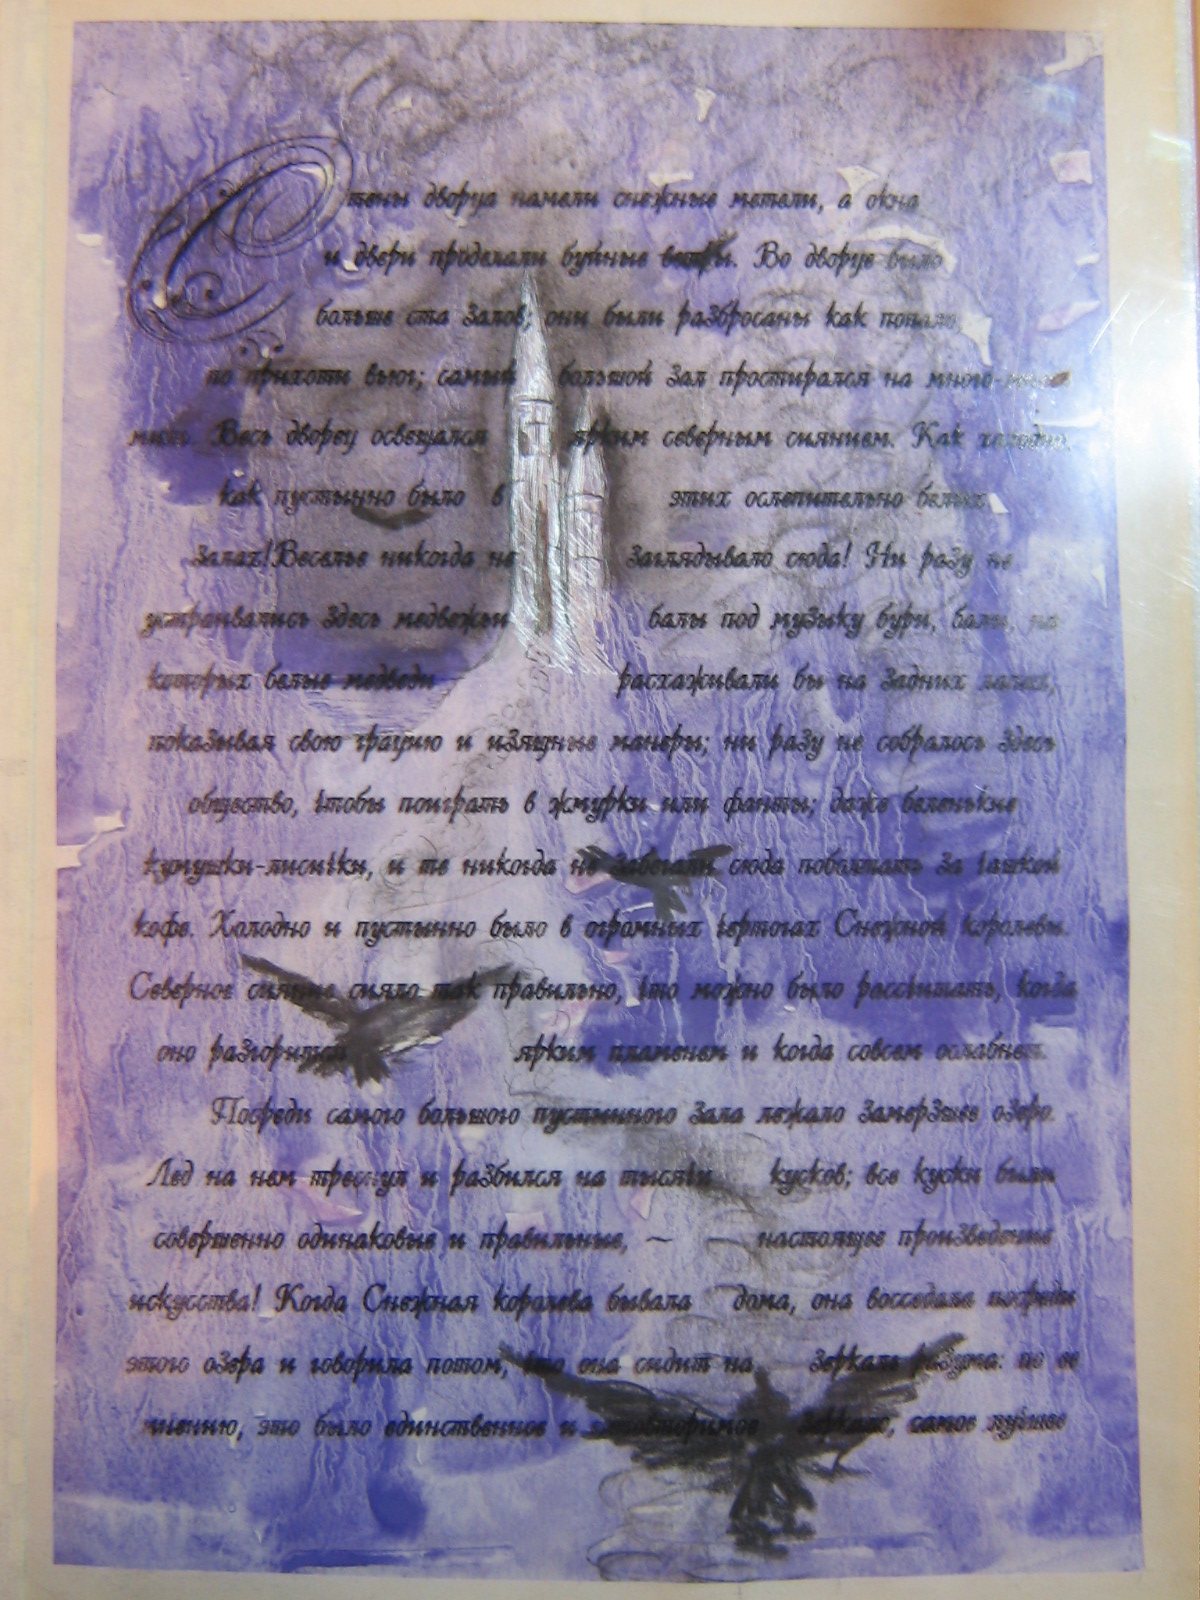 Стены дворца намели снежные метели, а окна
и двери проделали буйные ветры. Во дворце было
больше ста залов; они были разбросаны как попало,
по прихоти вьюг; самый большой зал простирался на много-много
миль. Весь дворец освещался ярким северным сиянием. Как холодно,
как пустынно было в этих ослепительно белых
залах! Веселье никогда не заглядывало сюда! Ни разу не
устраивались здесь медвежьи балы под музыку бури, балы, на
которых белые медведи расхаживали бы на задних лапах,
показывая свою грацию и изящные манеры; ни разу не собралось здесь
общество, чтобы поиграть в жмурки или фанты; даже беленькие
кумушки-лисички, и те никогда не забегали сюда поболтать за чашкой
кофе. Холодно и пустынно было в огромных чертогах Снежной королевы.
Северное сияние сияло так правильно, что можно было рассчитать, когда
оно разгорится ярким пламенем и когда совсем ослабнет.
Посреди самого большого пустынного зала лежало замерзшее озеро.
Лед на нем треснул и разбился на тысячи кусков; все куски были
совершенно одинаковые и правильные, ~ настоящее произведение
искусства! Когда Снежная королева бывала дома, она восседала посреди
этого озера и говорила потом, что она сидит на зеркале разума: по ее
мнению, это было единственное и неповторимое зеркало, самое лучшее